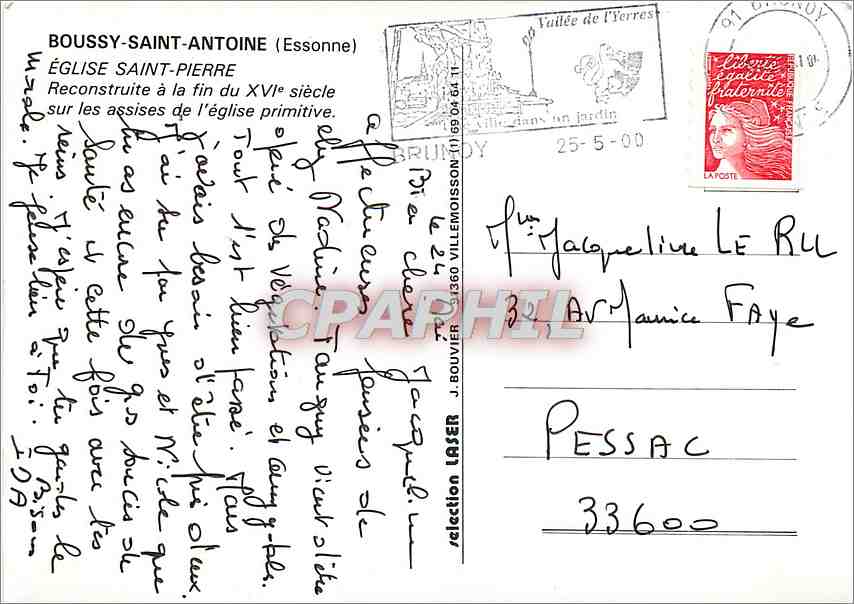 BOUSSY-SAINT-ANTOINE (Essonne)
ÉGLISE SAINT-PIERRE
Reconstruite à la fin du XVIe siècle
sur les assises de l'église primitive.
Vallée de l'Yerres
Ville dans un jardin
BRUNOY 25-5-00
91 BRUNOY
liberté
égalité
fraternité
RÉPUBLIQUE FRANÇAISE
LA POSTE
selection LASER J. BOUVIER 91360 VILLEMOISSON (1) 69 04 64 11
le 24 Mai
Bien chère Jacqueline
affectueuses pensées de
chez Nadine. Tanguy vient d'être
opéré des végétations et amygdales.
Tout s'est bien passé. Mais
j'avais besoin d'être près d'eux.
J'ai su par Yves et Nicole que
tu as encore de gros soucis de
santé et cette fois avec tes
reins. J'espère que tu gardes le
morale. Je pense bien à Toi. Bisous
IDA
Mme Jacqueline LE RU
32, AV Maurice FAYe
PESSAC
33600
CPARPHIL